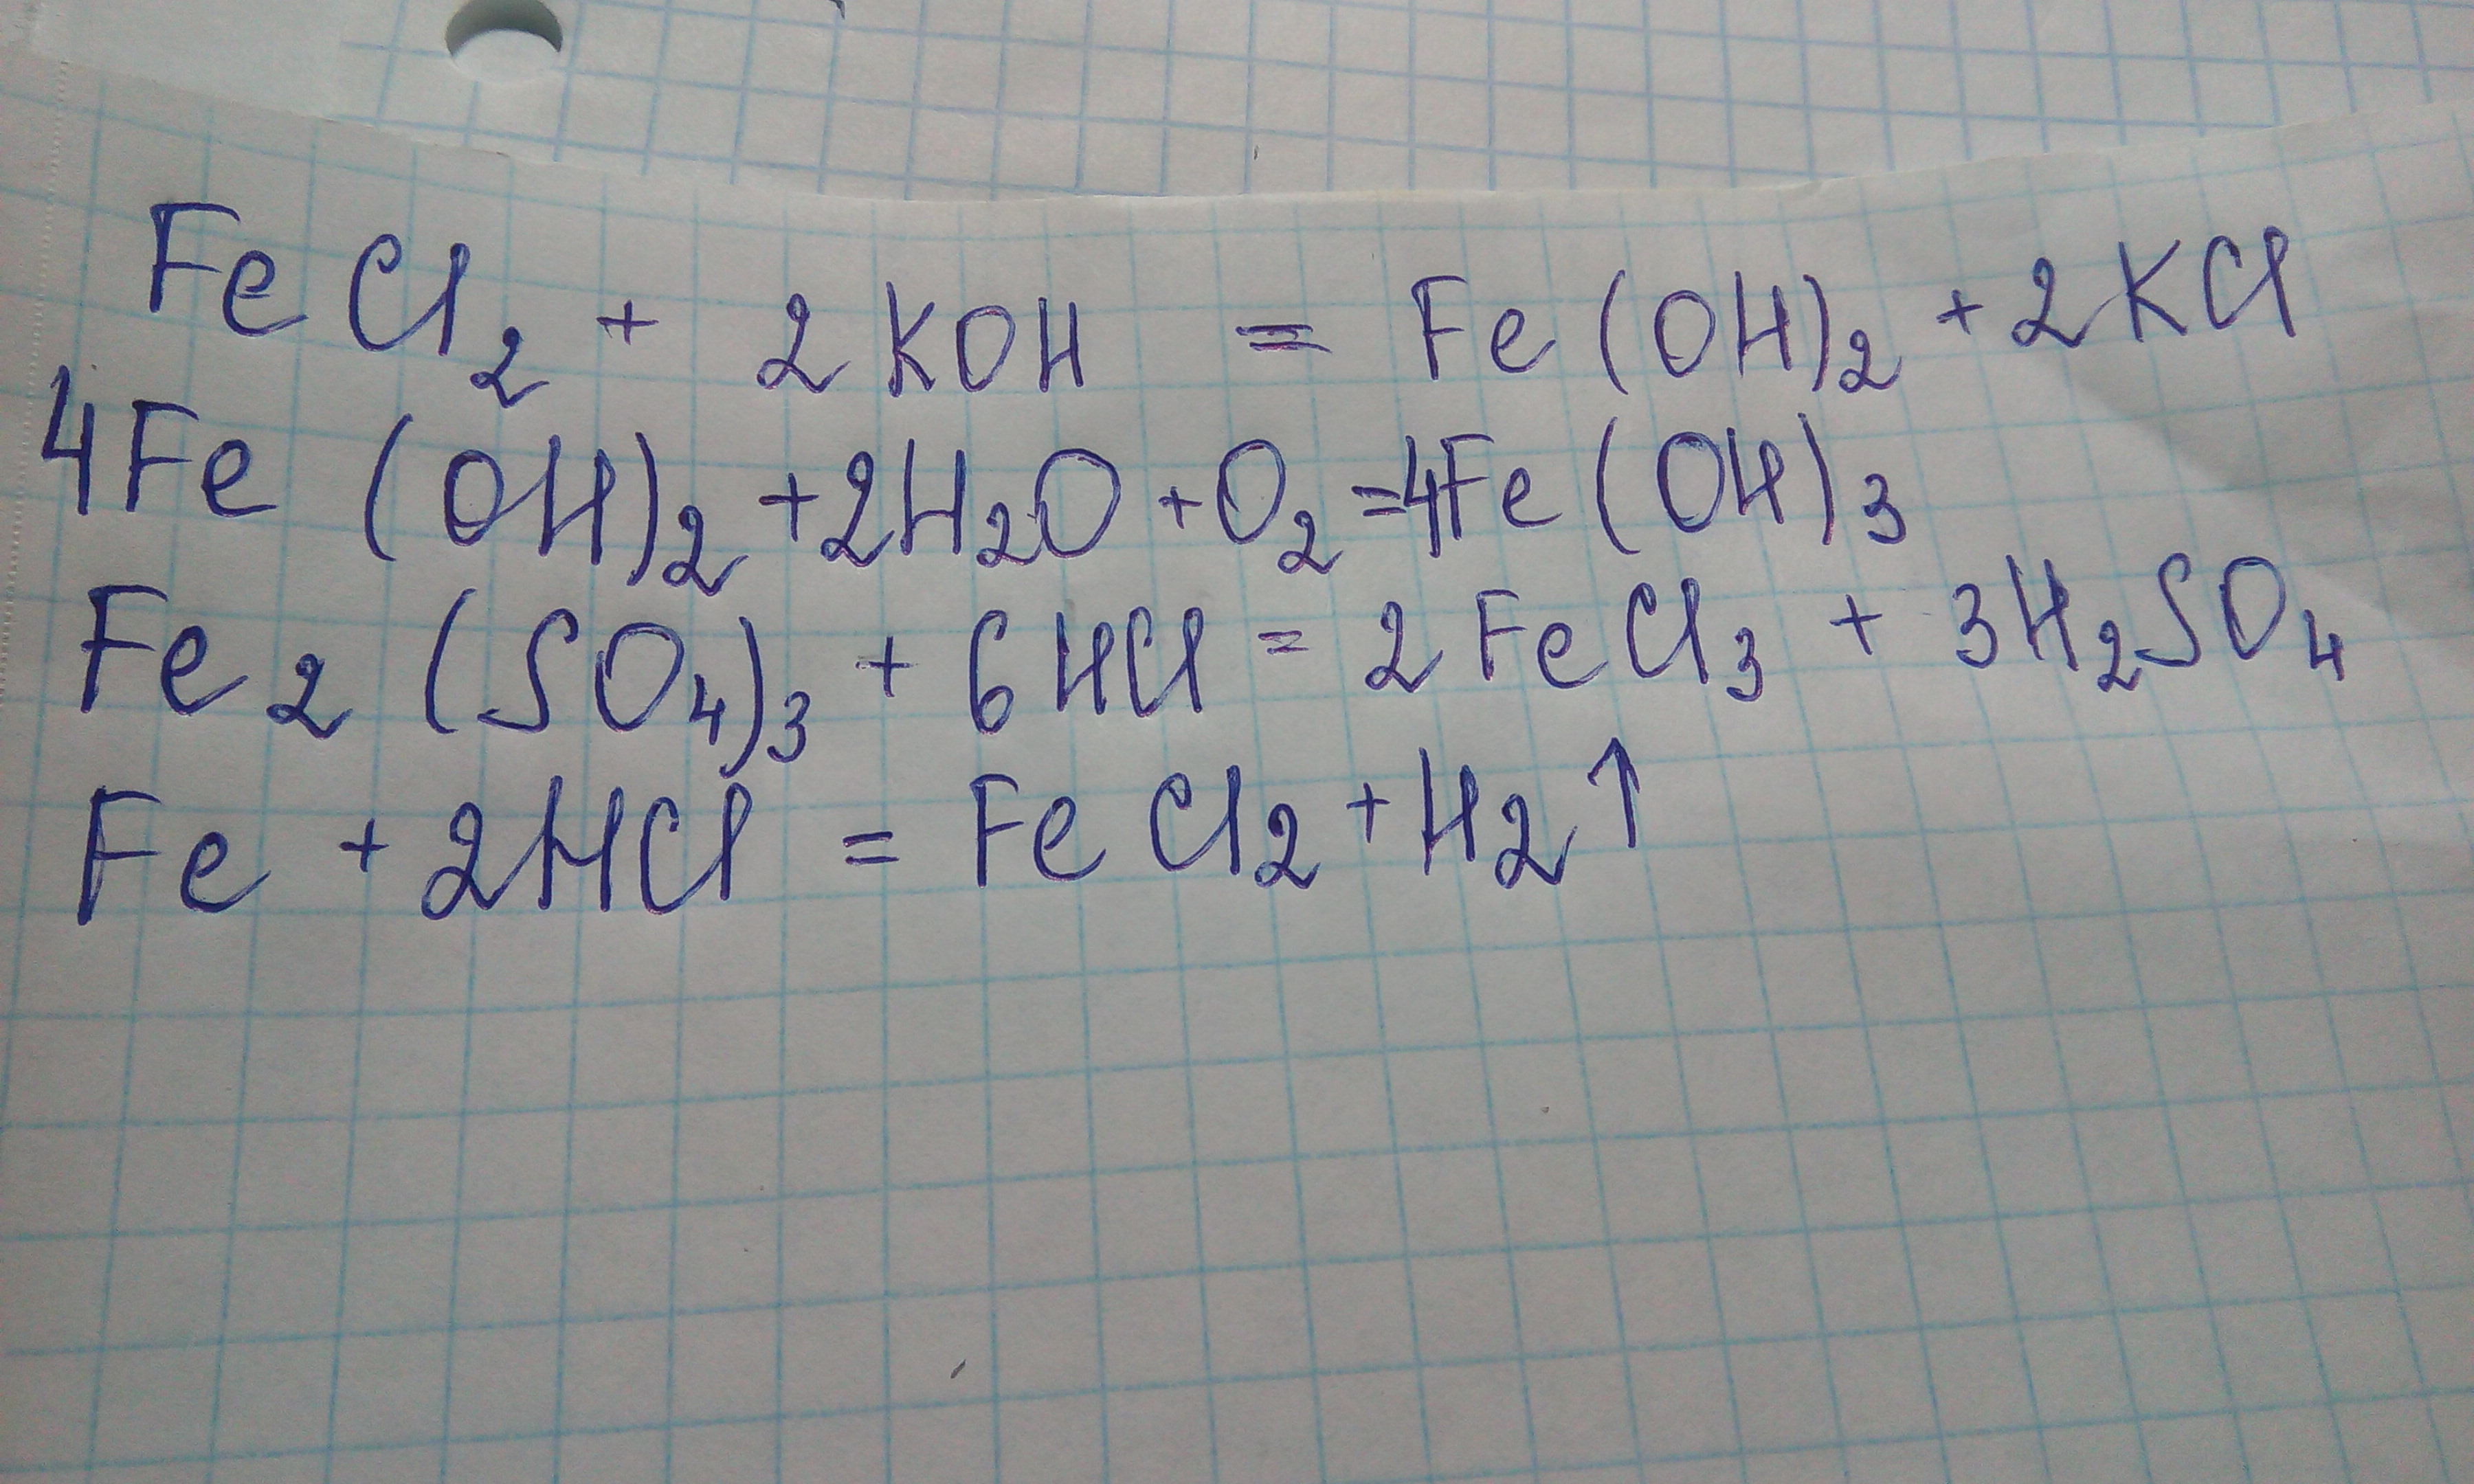 FeCl₂ + 2KOH = Fe(OH)₂ + 2KCl
4Fe(OH)₂ + 2H₂O + O₂ = 4Fe(OH)₃
Fe₂(SO₄)₃ + 6HCl = 2FeCl₃ + 3H₂SO₄
Fe + 2HCl = FeCl₂ + H₂↑